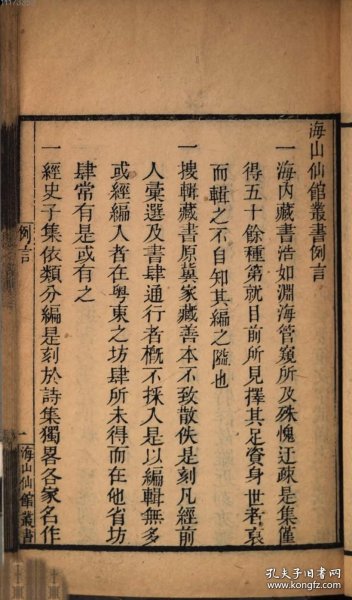 海山仙館叢書例言
一海內藏書浩如淵海管窺所及殊愧迂疎是集僅
得五十餘種第就目前所見擇其足資身世者裒
而輯之不自知其編之隘也
一搜輯藏書原冀家藏善本不致散佚是刻凡經前
人彙選及書肆通行者槪不採入是以編輯無多
或經編入者在粤東之坊肆所未得而在他省坊
肆常有是或有之
一經史子集依類分編是刻於詩集獨畧各家名作
例言
一
海山仙館叢書
孔夫子旧书网